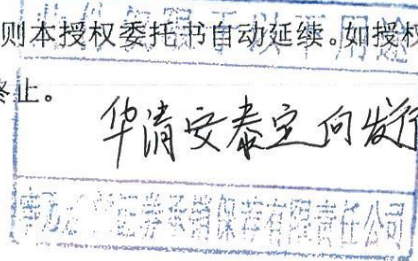 则本授权委托书自动延续。如授权
此件仅限于以下用途
终止。
华清安泰定向发行
申万宏源证券承销保荐有限责任公司